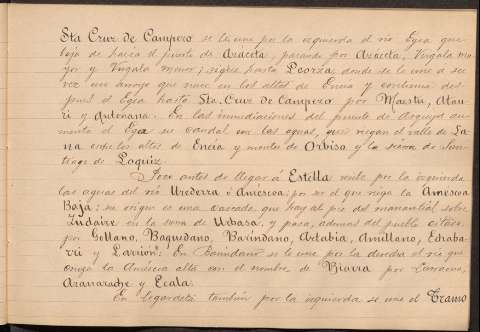 Sta Cruz de Campezo se le une por la izquierda el rio Egea que
baja de hacia el puerto de Azaceta, pasando por Azaceta, Virgala ma-
yor y Virgala menor; sigue hasta Leorza, donde se le une a su
vez un arroyo que nace en los altos de Encia y continua des-
pues el Egea hasta Sta. Cruz de Campezo por Maestu, Atau-
ri y Antoñana. En las inmediaciones del puente de Arquijo au-
menta el Ega su caudal con las aguas, que riegan el valle de La-
na entre los altos de Encia y montes de Orbiso y la sierra de San-
tiago de Loquiz.
Poco antes de llegar á Estella recibe por la izquierda
las aguas del rio Urederra ó Amézcoa: por ser el que riega la Amescoa
Baja; su origen es una cascada que hay al pie del manantial sobre
Zudaire en la zona de Urbasa, y pasa, ademas del pueblo citado
por Gollano, Baquedano, Barindano, Artabia, Amillano, Echaba-
rri y Larrión. En Barindano se le une por la derecha el rio que
cruza la Améscoa alta con el nombre de Biarra por Larraona,
Aranarache y Ecala.
En Legardeta tambien por la izquierda se une el Iranzo